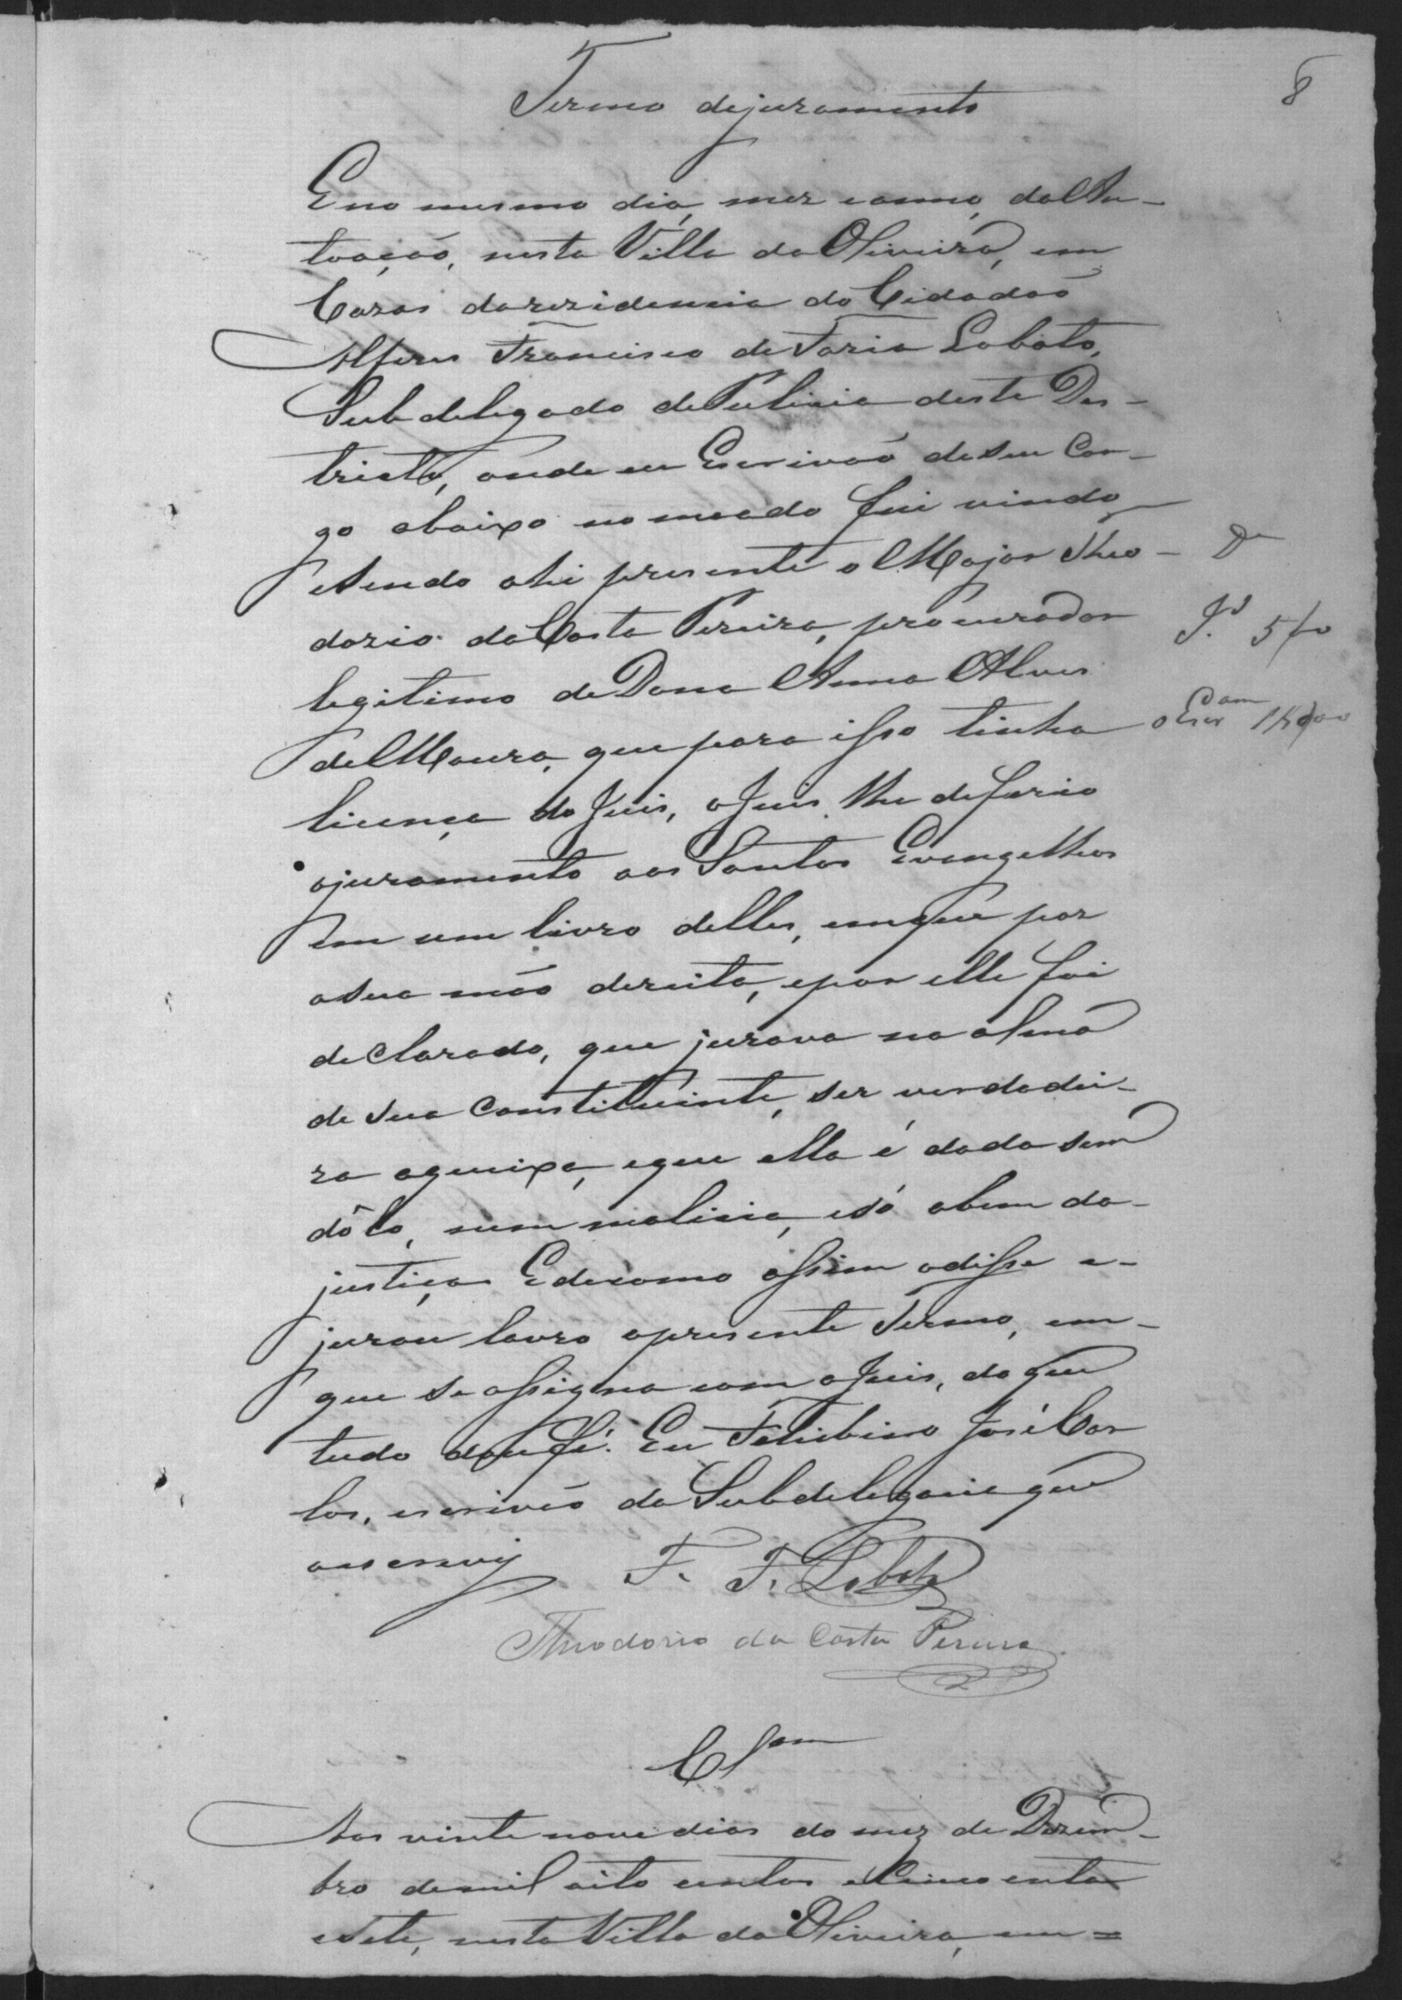 8
Termo de juramento
E no mesmo dia, mez e anno, da Au-
toação, nesta Villa da Oliveira, em
Cazas da rezidencia do Cidadão
Alferes Francisco de Faria Lobato,
Subdelegado de Pulicia deste Des-
tricto, onde eu Escrivão de seu Car-
go abaixo nomeado fui vindo
e sendo ahi presente o Major Theo-
dozio da Costa Pereira, procurador
Jº 5
legitimo de Dona Anna Alves
de Moura, que para isso tinha
licença do Juis, o Juis lhe deferio
o juramento aos Santos Evangelhos
em um livro delles, em que por
a sua mão dereita, e por elle foi
declarado, que jurava na alma
de sua Constituinte, ser verdadei-
ra a queixa, e que ella é dada sem
dôlo, nem malicia, e só a bem da
justiça. E de como assim o disse e
jurou lavro o presente Termo, em
que se assigna com o Juis, do que
tudo dou fé. Eu Felisbino José Car
los, escrivão da Subdelegacia que
o escrevy
F. F. Lobato
Theodozio da Costa Pereira
Clam
Aos vinte nove dias do mez de Dezem-
bro de mil oito centos e Cincoenta
e sete, nesta Villa da Oliveira, em =